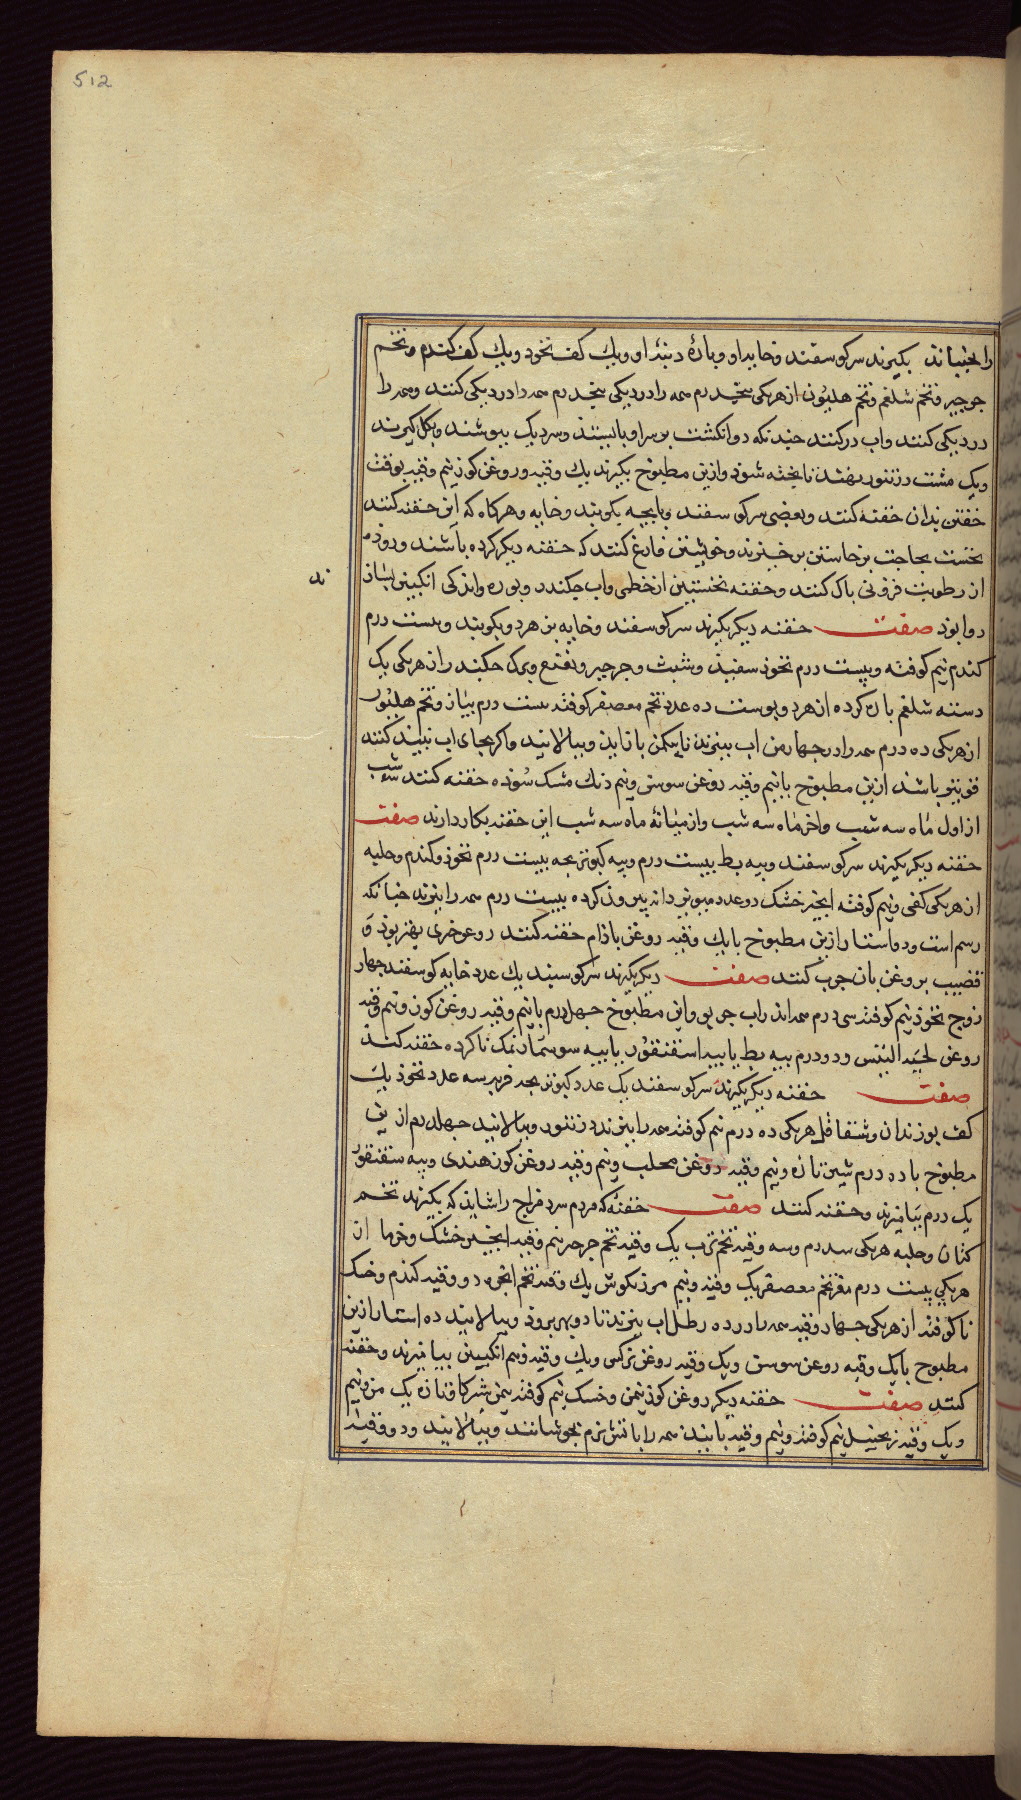 512
را بجنباند بکیرند سرکوسفند وخایه او وپارهٔ دنبهٔ او ویک کف نخود ویک کف کندم وتخم
جرجیر وتخم شلغم وتخم هلیون از هریکی پنجدرم همه را در دیکی کنند وهمه را
در دیکی کنند واب درکنند چندانکه دو انکشت بر سر او بایستد وسر دیک بپوشند وبکل کیرند
ویک شب در تنور نهند تا پخته شود وازین مطبوخ بکیرند یک وقیه وروغن کوز نیم وقیه بوقت
خفتن بدان حقنه کنند وبعضی سرکوسفند وپایچه بکوبند وخایه وهرکاه که این حقنه کنند
نخست بحاجت برخاستن برخیزند وخویشتن فارغ کنند که حقنه دیکر کرده باشند وروده
از رطوبت فزونی پاک کنند وحقنه نخستین از خطمی واب چکندر وبوره واندکی انکبین بسازند
روا بود صفت حقنه دیکر بکیرند سرکوسفند وخایه بز هردو بکوبند وبیست درم
کندم نیم کوفته وبیست درم نخود سفید وشبث وجرجیر ونعنع وبرک چکندر از هریکی یک
دسته شلغم پاره کرده از هردو پوست ده عدد تخم معصفر کوفته بیست درم پیاز وتخم هلیون
از هریکی ده درم همه را در چهار من اب بپزند تا بیکمن باز اید وبپالایند واکر بجای اب نبیذ کنند
قویتر باشد ازین مطبوخ با نیم وقیه روغن سوسن ونیم دنک مشک سوده حقنه کنند سه شب
از اول ماه سه شب واخر ماه سه شب واز میانهٔ ماه سه شب این حقنه بکار دارند صفت
حقنه دیکر بکیرند سرکوسفند وپیه بط بیست درم وپیه کبوتر بچه بیست درم نخود وکندم وحلبه
از هریکی کفی ونیم کوفته انجیر خشک دو عدد مویز دانه بیرون کرده بیست درم همه را بپزند چنانکه
رسم است ودو استار ازین مطبوخ با یک وقیه روغن بادام حقنه کنند روغن خری بهتر بود و
قضیب بروغن بان چرب کنند صفت دیکر بکیرند سرکوسپند یک عدد خایه کوسفند چهار
زوج نخود نیم کوفته سی درم همه اندر اب جو وازین مطبوخ چهل درم با نیم وقیه روغن کوز ونیم وقیه
روغن لحیة التیس ودو درم پیه بط یا پیه اسقنقور با پیه سوسمار نمک ناکرده حقنه کنند
صفت حقنه دیکر بکیرند سرکوسفند یک عدد کبوتر بچه فربه سه عدد نخود یک
کف بوزندان وشقاقل هریکی ده درم نیم کوفته همه را بپزند در تنور وبپالایند چهل درم ازین
مطبوخ با ده درم شیر تازه ونیم وقیه روغن محلب ونیم وقیه روغن کوز هندی وپیه سقنقور
یک درم بیامیزند وحقنه کنند صفت حقنهٔ که مردم سرد مزاج را شاید که بکیرند تخم
کتان وحلبه هریکی سه درم وسه وقیه تخم ترب یک وقیه تخم جرجیر نیم وقیه انجیر خشک وخرما از
هریکی بیست درم مغز تخم معصفر یک وقیه ونیم مرزنکوش یک وقیه تخم انجره دو وقیه کندم وخسک
ناکوفته از هریکی چهار وقیه همه را در ده رطل اب بپزند تا دو بهر برود وبپالایند ده استار ازین
مطبوخ با یک وقیه روغن سوسن ویک وقیه روغن نرکس ویک وقیه ونیم انکبین بیامیزند وحقنه
کنند صفت حقنه دیکر روغن کوز نیمن وخسک نیم کوفته نیمن شیر کاو تازه یک من ونیم
ویک وقیه زنجبیل نیم کوفته ونیم وقیه پانید همه را باتش نرم بجوشانند وبپالایند ودو وقیه
ند